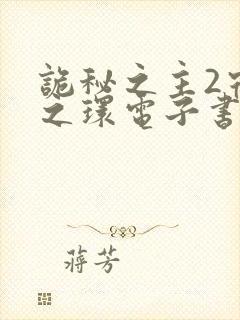 詭秘之主2
之環電子書
蔣芳